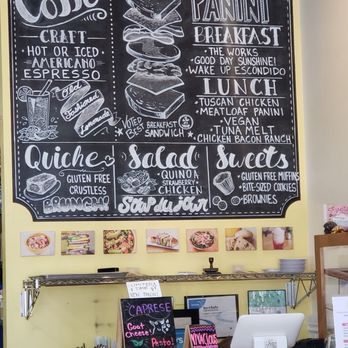 Coffee
CRAFT
HOT OR ICED
AMERICANO
ESPRESSO
Old
Fashioned
Lemonade
VOTED
BEST
BREAKFAST
SANDWICH
PANINI
BREAKFAST
THE WORKS
GOOD DAY SUNSHINE!
WAKE UP ESCONDIDO
LUNCH
TUSCAN CHICKEN
MEATLOAF PANINI
VEGAN
TUNA MELT
CHICKEN BACON RANCH
Quiche
GLUTEN FREE
CRUSTLESS
Salad
QUINOA
STRAWBERRY
CHICKEN
Soup du jour
Sweets
GLUTEN FREE MUFFINS
BITE-SIZED COOKIES
BROWNIES
LIMITED
TIME
CAPRESE
Goat
Cheese!
Pesto!